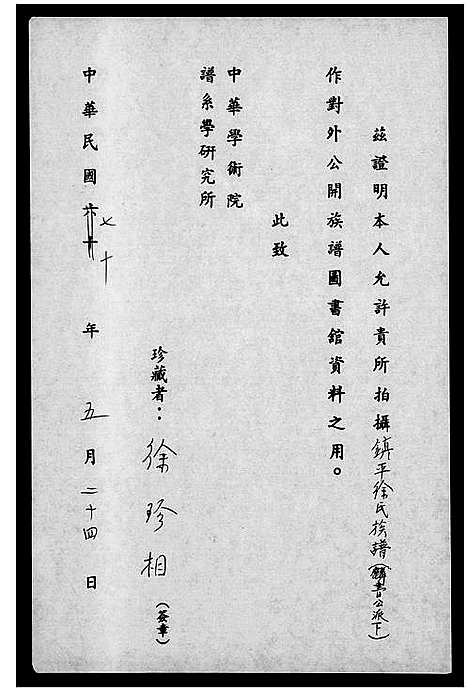 茲證明本人允許貴所拍攝鎮平徐氏族譜(麟書公派下)
作對外公開族譜圖書館資料之用。
此致
中華學術院
譜系學研究所
珍藏者：徐珍相(簽章)
中華民國七十年五月二十四日